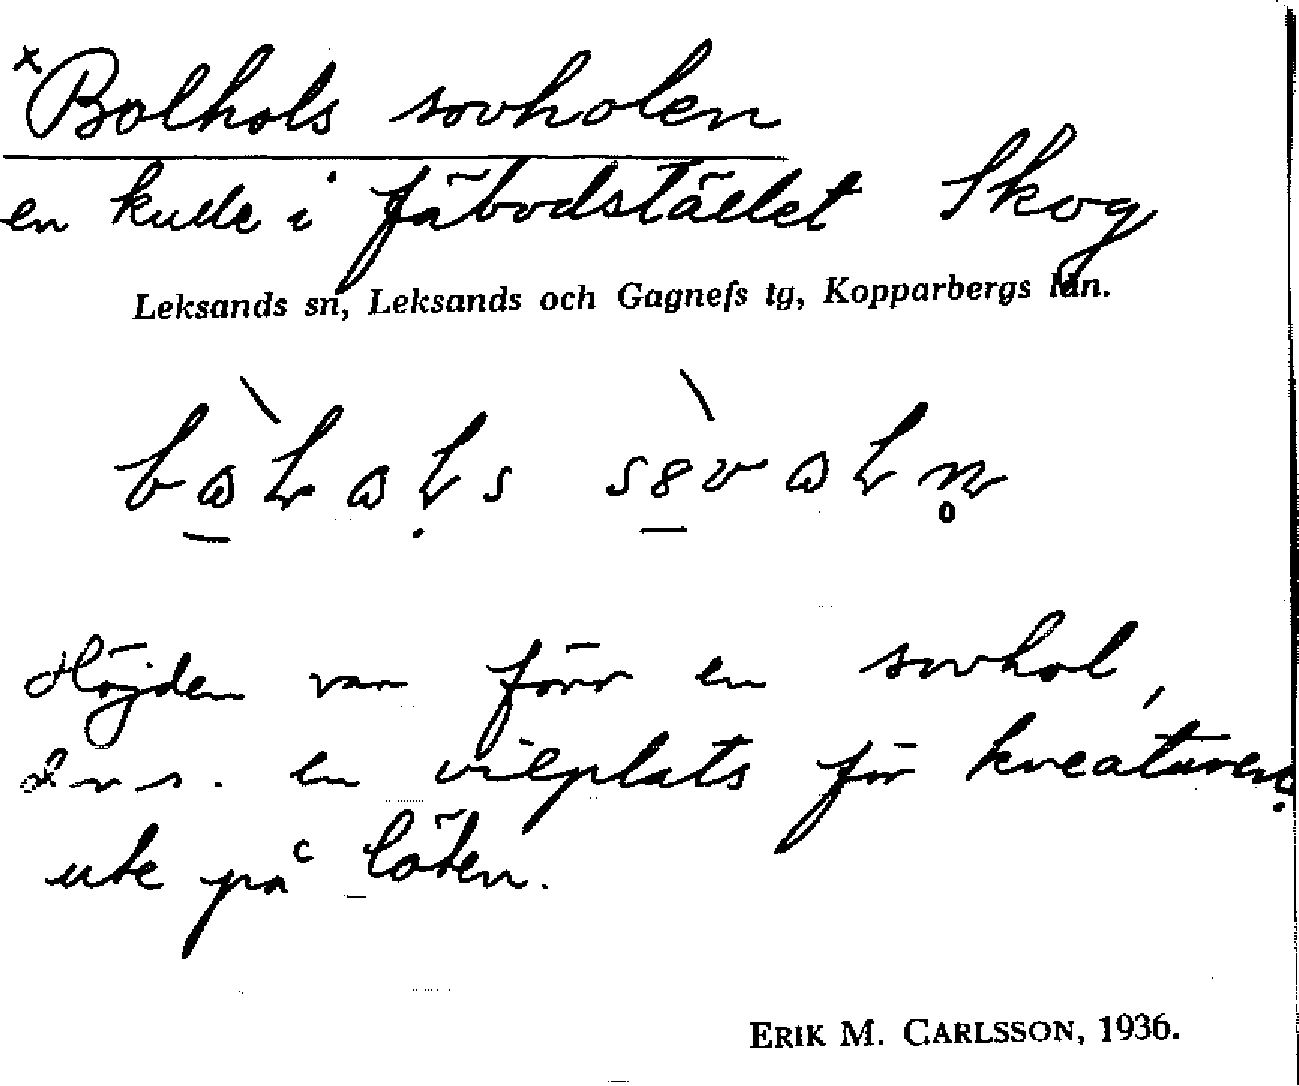 x Bolhols sovholen
en kulle i fäbodstället Skog
Leksands sn, Leksands och Gagnefs tg, Kopparbergs län.
Höjden var förr en sovhol,
d.v.s. en viloplats för kreaturen
ute på löten.
ERIK M. CARLSSON, 1936.